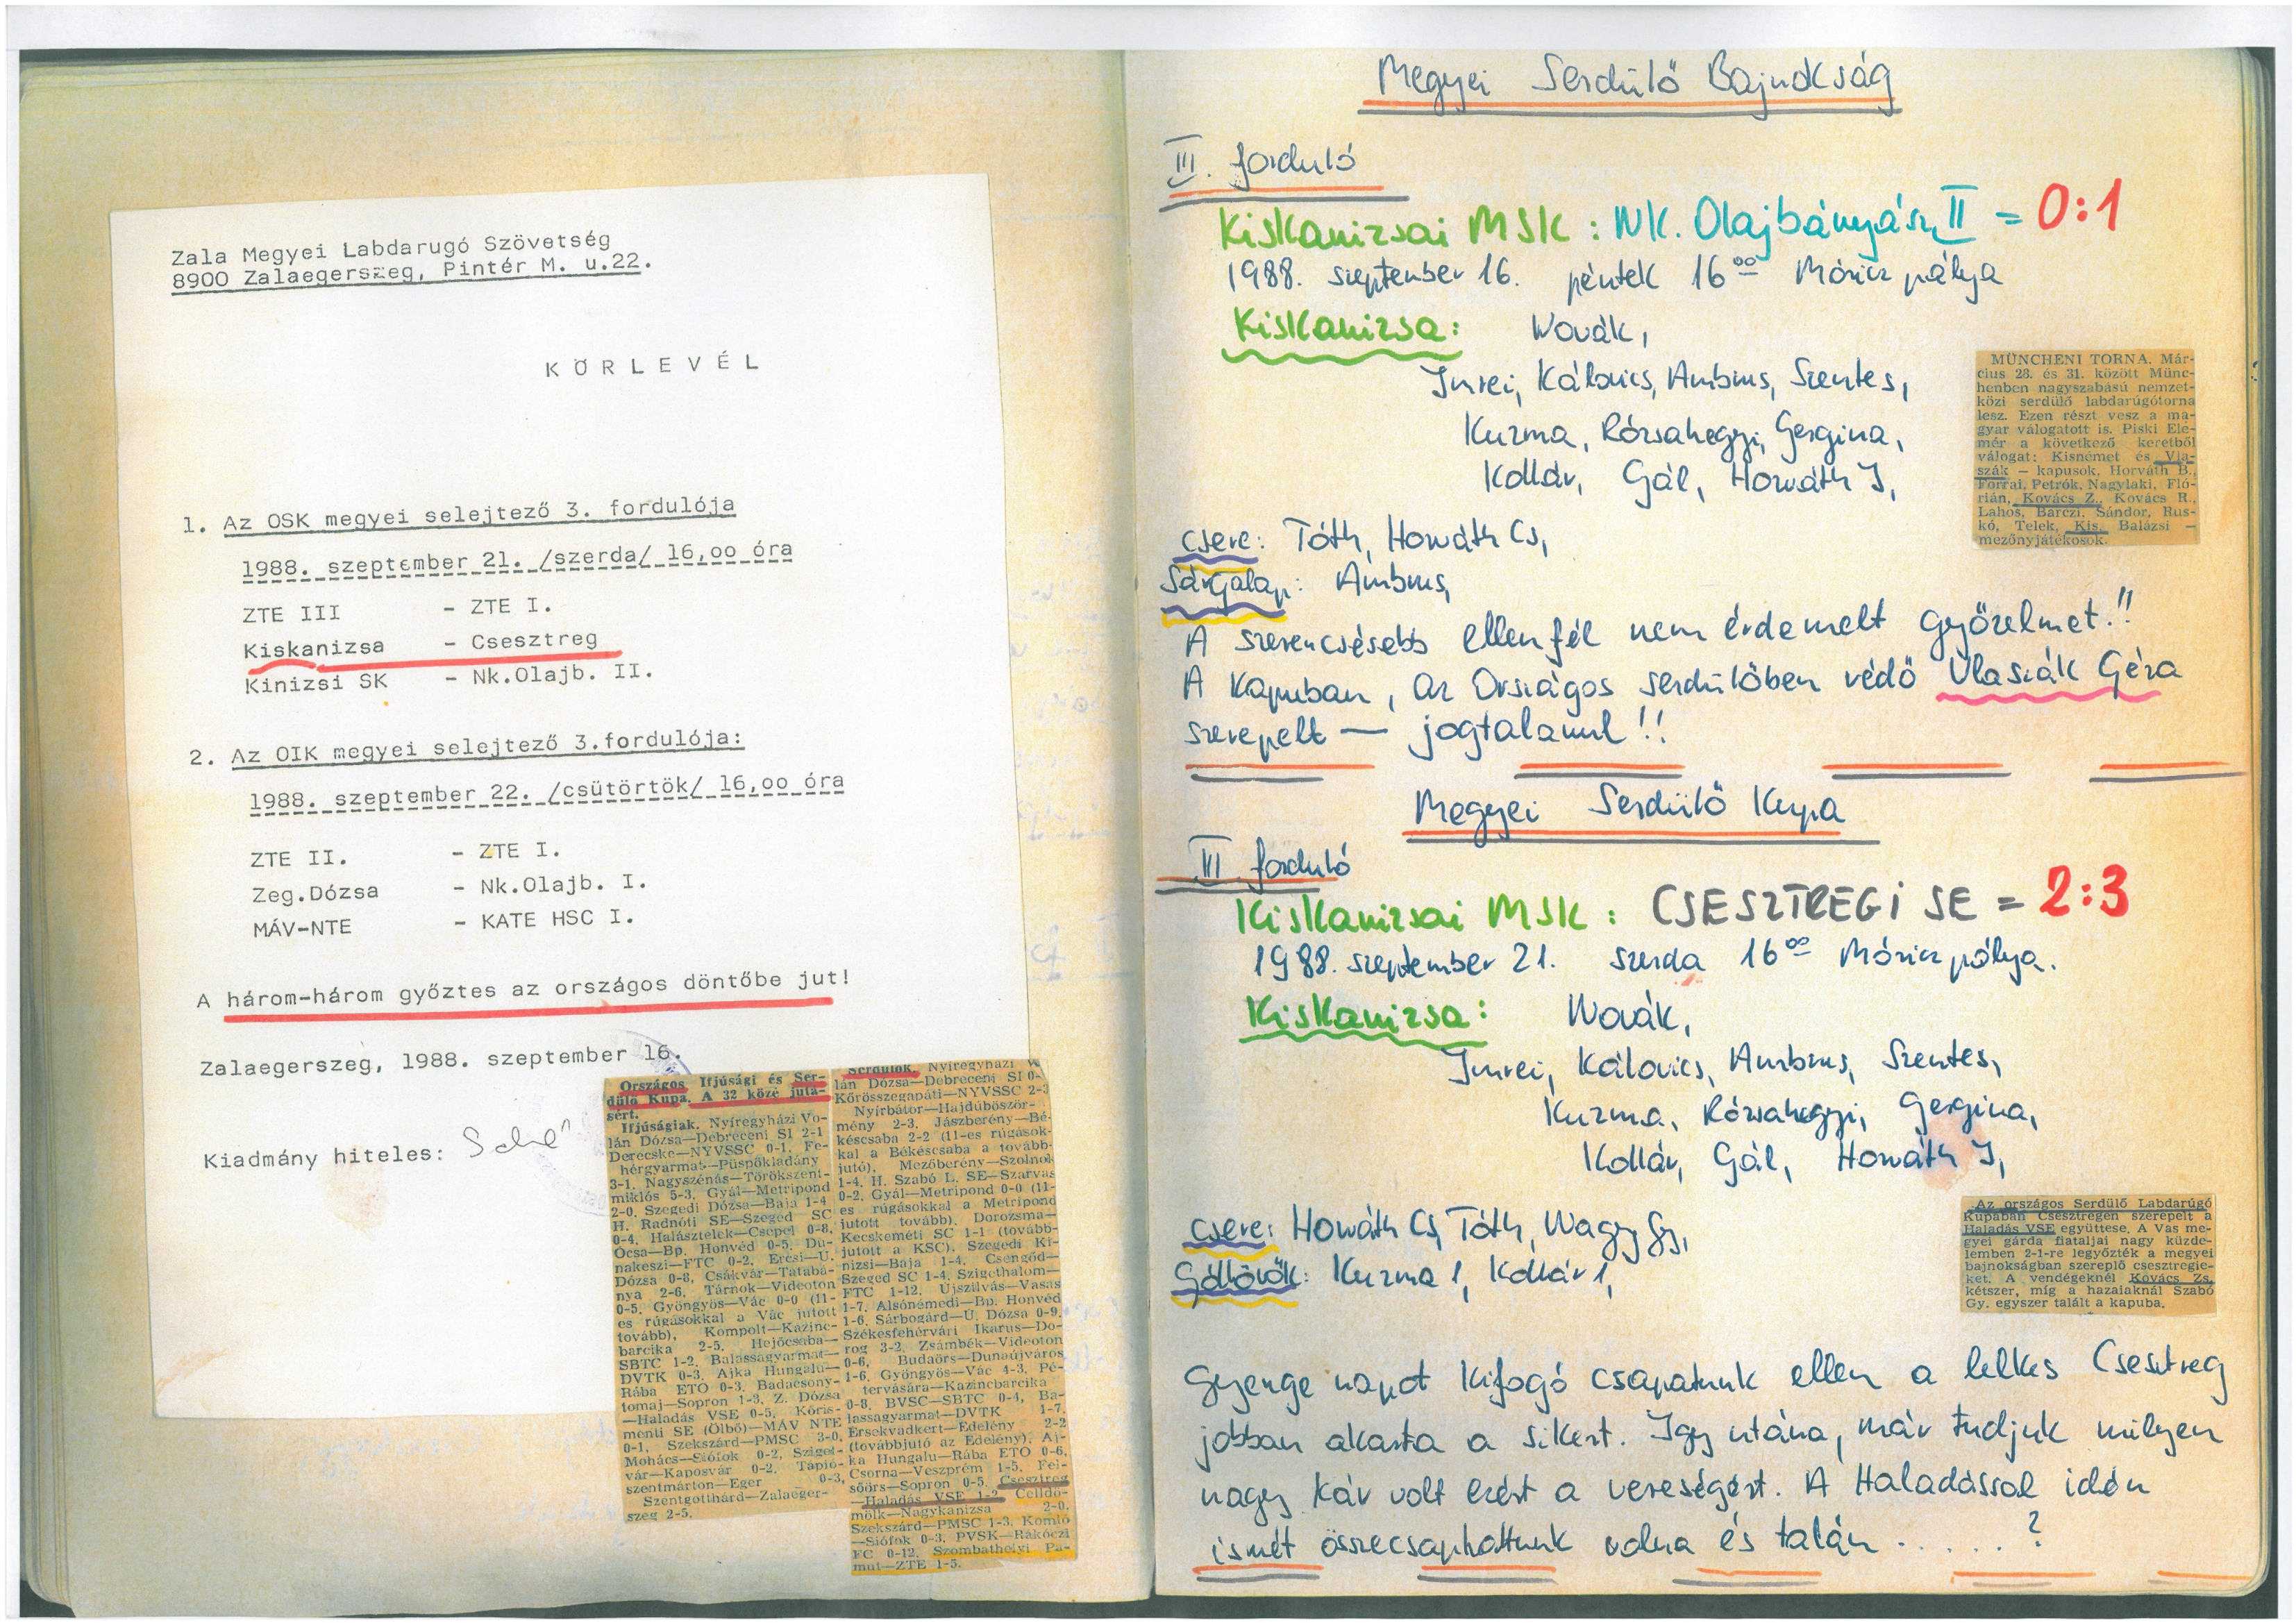 Zala Megyei Labdarugó Szövetség
8900 Zalaegerszeg, Pintér M. u.22.
KÖRLEVÉL
1. Az OSK megyei selejtező 3. fordulója
1988. szeptember 21. /szerda/ 16,oo óra
ZTE III - ZTE I.
Kiskanizsa - Csesztreg
Kinizsi SK - Nk.Olajb. II.
2. Az OIK megyei selejtező 3.fordulója:
1988. szeptember 22. /csütörtök/ 16,oo óra
ZTE II. - ZTE I.
Zeg.Dózsa - Nk.Olajb. I.
MÁV-NTE - KATE HSC I.
A három-három győztes az országos döntőbe jut!
Zalaegerszeg, 1988. szeptember 16.
Kiadmány hiteles:
Országos Ifjúsági és Ser-
dülő Kupa. A 32 közé jutá-
sért.
Ifjúságiak. Nyíregyházi Vo-
lán Dózsa—Debreceni SI 2-1
Derecske—NYVSSC 0-1, Fe-
hérgyarmat—Püspökladány
3-1. Nagyszénás—Törökszent-
miklós 5-3, Gyál—Metripond
2-0, Szegedi Dózsa—Baja 1-4
H. Radnóti SE—Szeged SC
0-4, Halásztelek—Csepel 0-8,
Ócsa—Bp. Honvéd 0-5, Du-
nakeszi—FTC 0-2, Ercsi—U.
Dózsa 0-8, Csákvár—Tatabá-
nya 2-6, Tárnok—Videoton
0-5, Gyöngyös—Vác 0-0 (11-
es rúgásokkal a Vác jutott
tovább), Kompolt—Kazinc-
barcika 2-5, Hejőcsaba—
SBTC 1-2, Balassagyarmat—
DVTK 0-3, Ajka Hungalu—
Rába ETO 0-3, Badacsony-
tomaj—Sopron 1-3, Z. Dózsa
—Haladás VSE 0-5, Kőris-
menti SE (Ölbő)—MÁV NTE
0-1, Szekszárd—PMSC 3-0,
Mohács—Siófok 0-2, Sziget-
vár—Kaposvár 0-2, Tápió-
szentmárton—Eger 0-3,
Szentgotthárd—Zalaeger-
szeg 2-5.
Serdülők. Nyíregyházi V
lán Dózsa—Debreceni SI 0-
Körösszegapáti—NYVSSC 2-3
Nyírbátor—Hajdúböször-
mény 2-3, Jászberény—Bé-
késcsaba 2-2 (11-es rúgások-
kal a Békéscsaba a tovább-
jutó), Mezőberény—Szolnok
1-4, H. Szabó L. SE—Szarvas
0-2, Gyál—Metripond 0-0 (11-
es rúgásokkal a Metripond
jutott tovább), Dorozsma—
Kecskeméti SC 1-1 (tovább-
jutott a KSC), Szegedi Ki-
nizsi—Baja 1-4, Csengőd—
Szeged SC 1-4, Szigethalom—
FTC 1-12, Újszilvás—Vasas
1-7, Alsónémedi—Bp. Honvéd
1-6, Sárbogárd—U. Dózsa 0-9,
Székesfehérvári Ikarus—Do-
rog 3-2, Zsámbék—Videoton
0-6, Budaörs—Dunaújváros
1-6, Gyöngyös—Vác 4-3, Pé-
tervására—Kazincbarcika
0-8, BVSC—SBTC 0-4, Ba-
lassagyarmat—DVTK 1-7,
Érsekvadkert—Edelény 2-2
(továbbjutó az Edelény), Aj-
ka Hungalu—Rába ETO 0-6,
Csorna—Veszprém 1-5, Fel-
sőörs—Sopron 0-5, Csesztreg
—Haladás VSE 1-2, Celldö-
mölk—Nagykanizsa 2-0,
Szekszárd—PMSC 1-3, Komló
—Siófok 0-3, PVSK—Rákóczi
FC 0-12, Szombathelyi Pa-
mut—ZTE 1-5.
Megyei Serdülő Bajnokság
III. forduló
Kiskanizsai MSK : NK. Olajbányász II = 0:1
1988. szeptember 16. péntek 16ºº Móricz pálya
Kiskanizsa: Novák,
Imrei, Kálovics, Ambrus, Szentes,
Kuzma, Rózsahegyi, Gergina,
Kollár, Gál, Horváth I,
MÜNCHENI TORNA. Már-
cius 28. és 31. között Münc-
henben nagyszabású nemzet-
közi serdülő labdarúgótorna
lesz. Ezen részt vesz a ma-
gyar válogatott is. Piski Ele-
mér a következő keretből
válogat: Kisnémet és Vla-
szák — kapusok, Horváth B.,
Forrai, Petrók, Nagylaki, Fló-
rián, Kovács Z., Kovács R.,
Lahos, Bárczi, Sándor, Rus-
kó, Telek, Kis, Balázsi —
mezőnyjátékosok.
Csere: Tóth, Horváth Cs,
Sárgalap: Ambrus,
A szerencsésebb ellenfél nem érdemelt győzelmet!!
A kapuban, az Országos serdülőben védő Vlaszák Géza
szerepelt — jogtalanul!!
Megyei Serdülő Kupa
III. forduló
Kiskanizsai MSK : CSESZTREGI SE = 2:3
1988. szeptember 21. szerda 16ºº Móricz pálya.
Kiskanizsa: Novák,
Imrei, Kálovics, Ambrus, Szentes,
Kuzma, Rózsahegyi, Gergina,
Kollár, Gál, Horváth I,
Csere: Horváth Cs, Tóth, Nagy Gy,
Góllövők: Kuzma 1, Kollár 1,
Az országos Serdülő Labdarúgó
Kupában Csesztregen szerepelt a
Haladás VSE együttese. A Vas me-
gyei gárda fiataljai nagy küzde-
lemben 2-1-re legyőzték a megyei
bajnokságban szereplő csesztregie-
ket. A vendégeknél Kovács Zs.
kétszer, míg a hazaiaknál Szabó
Gy. egyszer talált a kapuba.
Gyenge napot kifogó csapatunk ellen a lelkes Csesztreg
jobban akarta a sikert. Igy utána, már tudjuk milyen
nagy kár volt ezért a vereségért. A Haladással idén
ismét összecsaphattunk volna és talán . . . . . ?